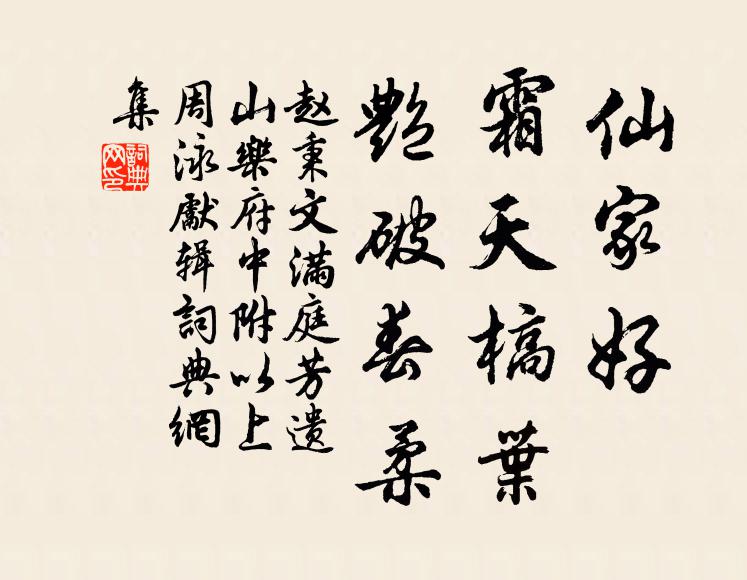 仙家好
霜天槁葉
艷破春柔
赵秉文滿庭芳遗
山樂府中附以上
周泳獻辑詞典網
集
詞典網印